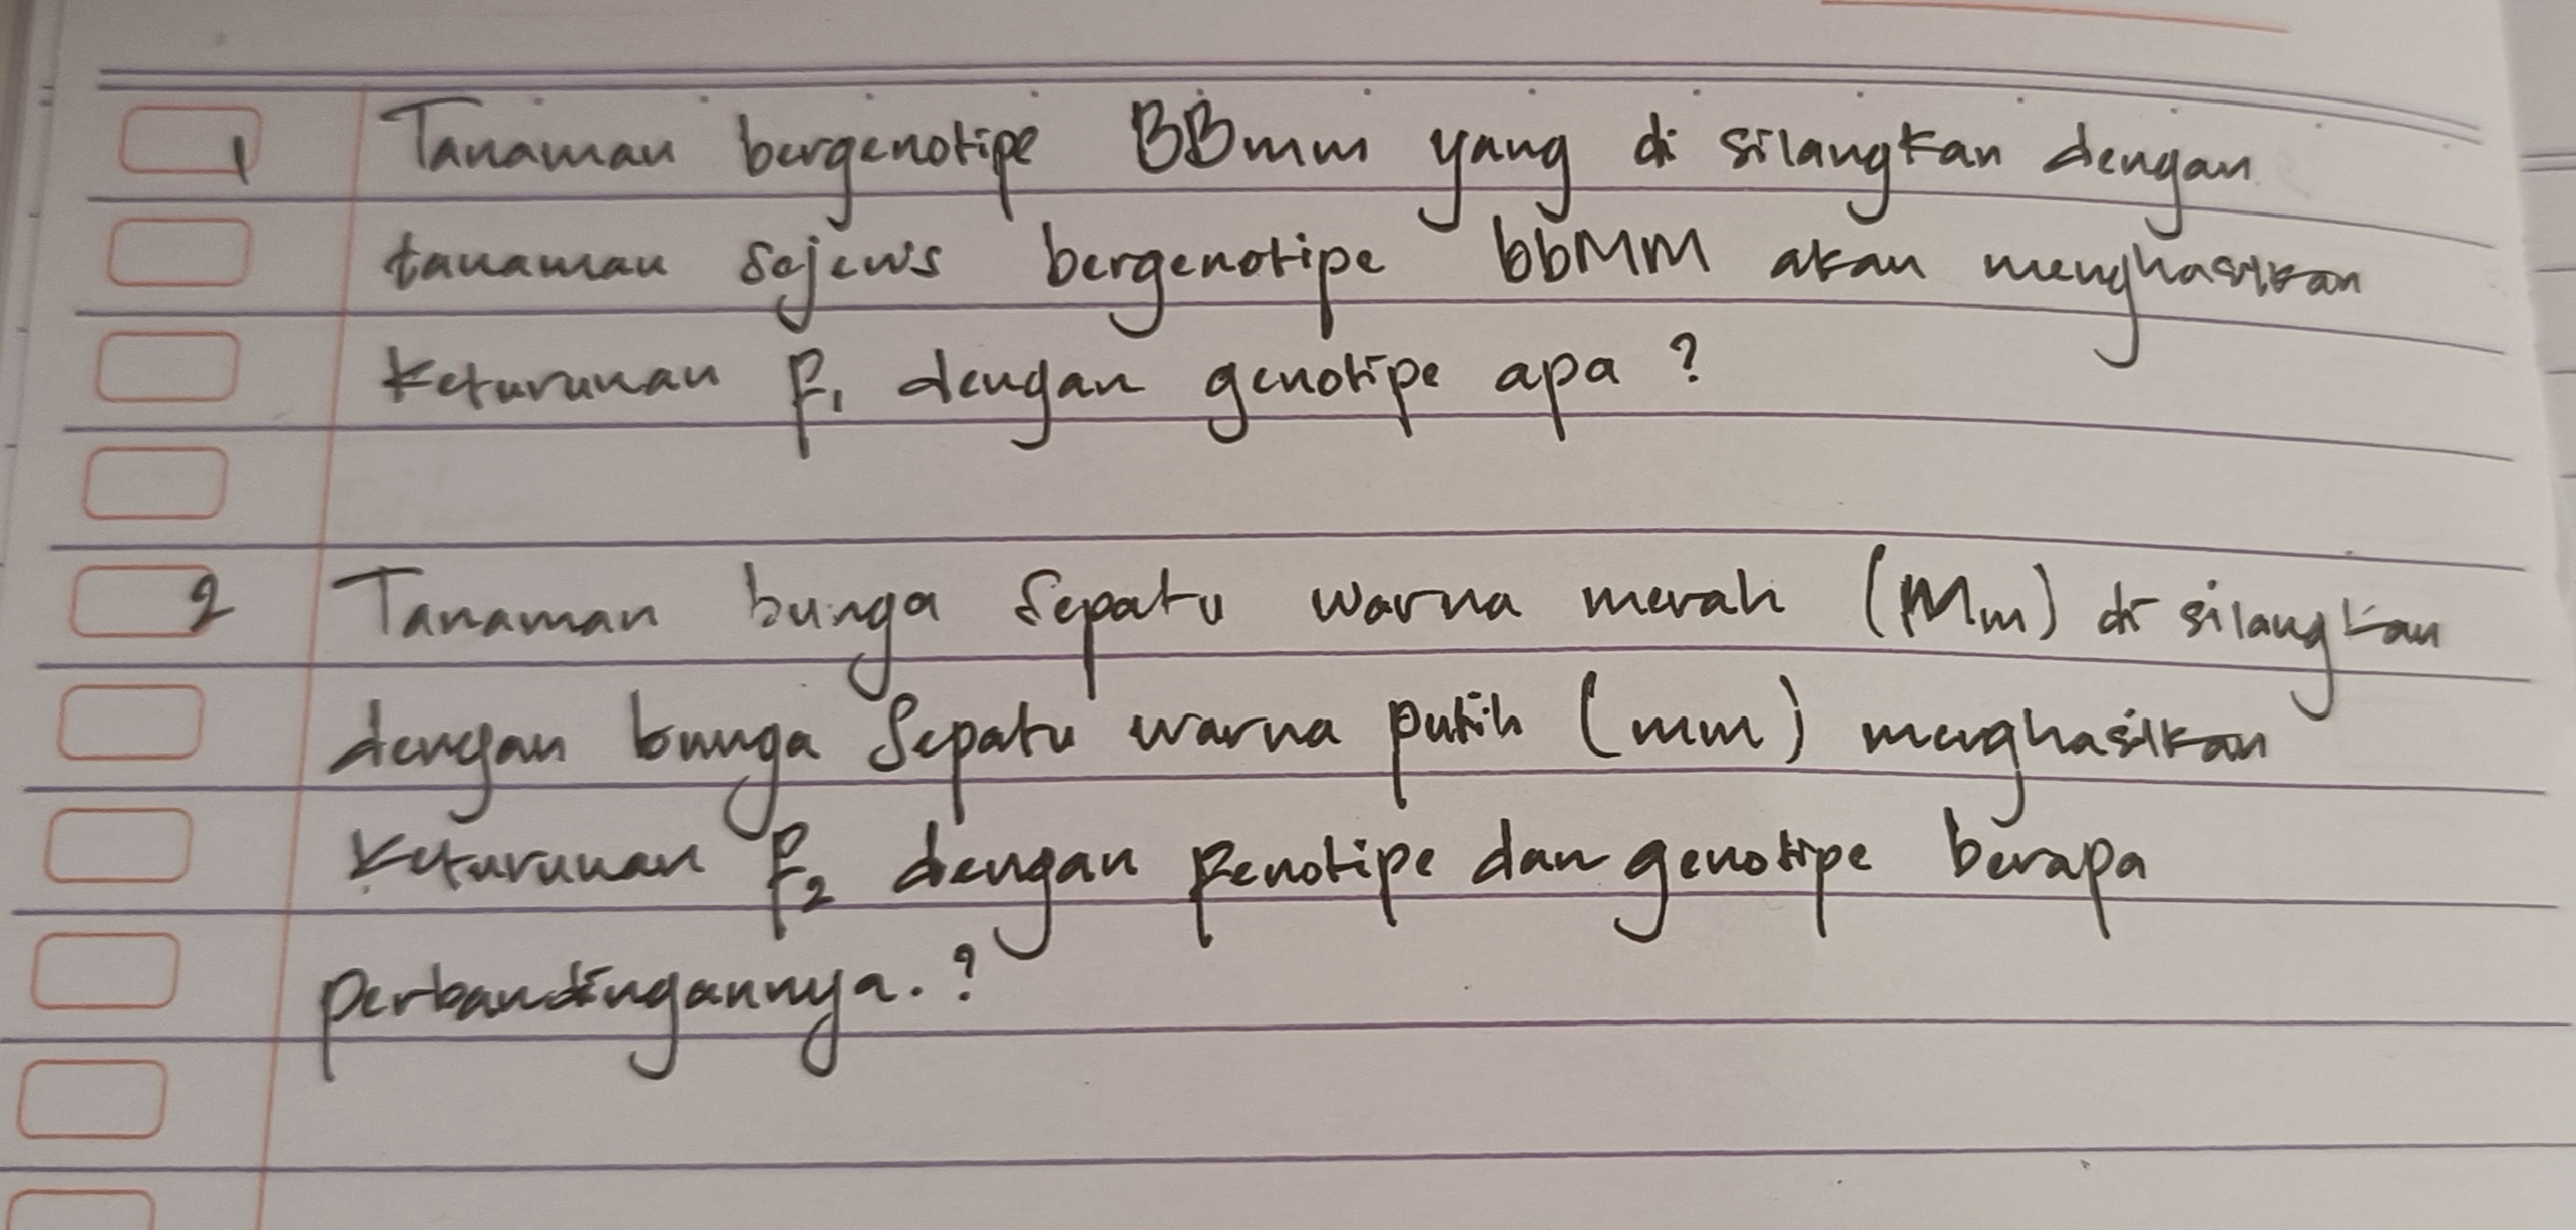 1 Tanaman bergenotipe BBmm yang di silangkan dengan
tanaman sejenis bergenotipe bbMM akan menghasilkan
keturunan F1 dengan genotipe apa ?
2 Tanaman bunga sepatu warna merah (Mm) di silangkan
dengan bunga sepatu warna putih (mm) menghasilkan
keturunan F2 dengan fenotipe dan genotipe berapa
perbandingannya. ?